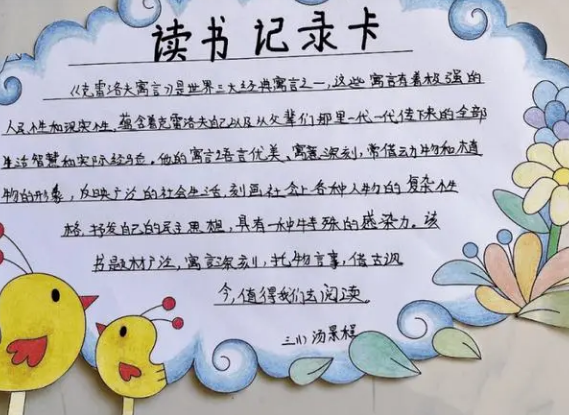 读书记录卡
《克雷洛夫寓言》是世界三大经典寓言之一,这些寓言有着极强的
人民性和现实性,蕴含着克雷洛夫自己以及从父辈们那里一代一代传下来的全部
生活智慧和实际经验。他的寓言语言优美、寓意深刻,常借动物和植
物的形象,反映广泛的社会生活,刻画社会上各种人物的复杂性
格,抒发自己的民主思想,具有一种特殊的感染力。该
书题材广泛,寓言深刻,托物言事,借古讽
今,值得我们去阅读。
三(1) 汤景程